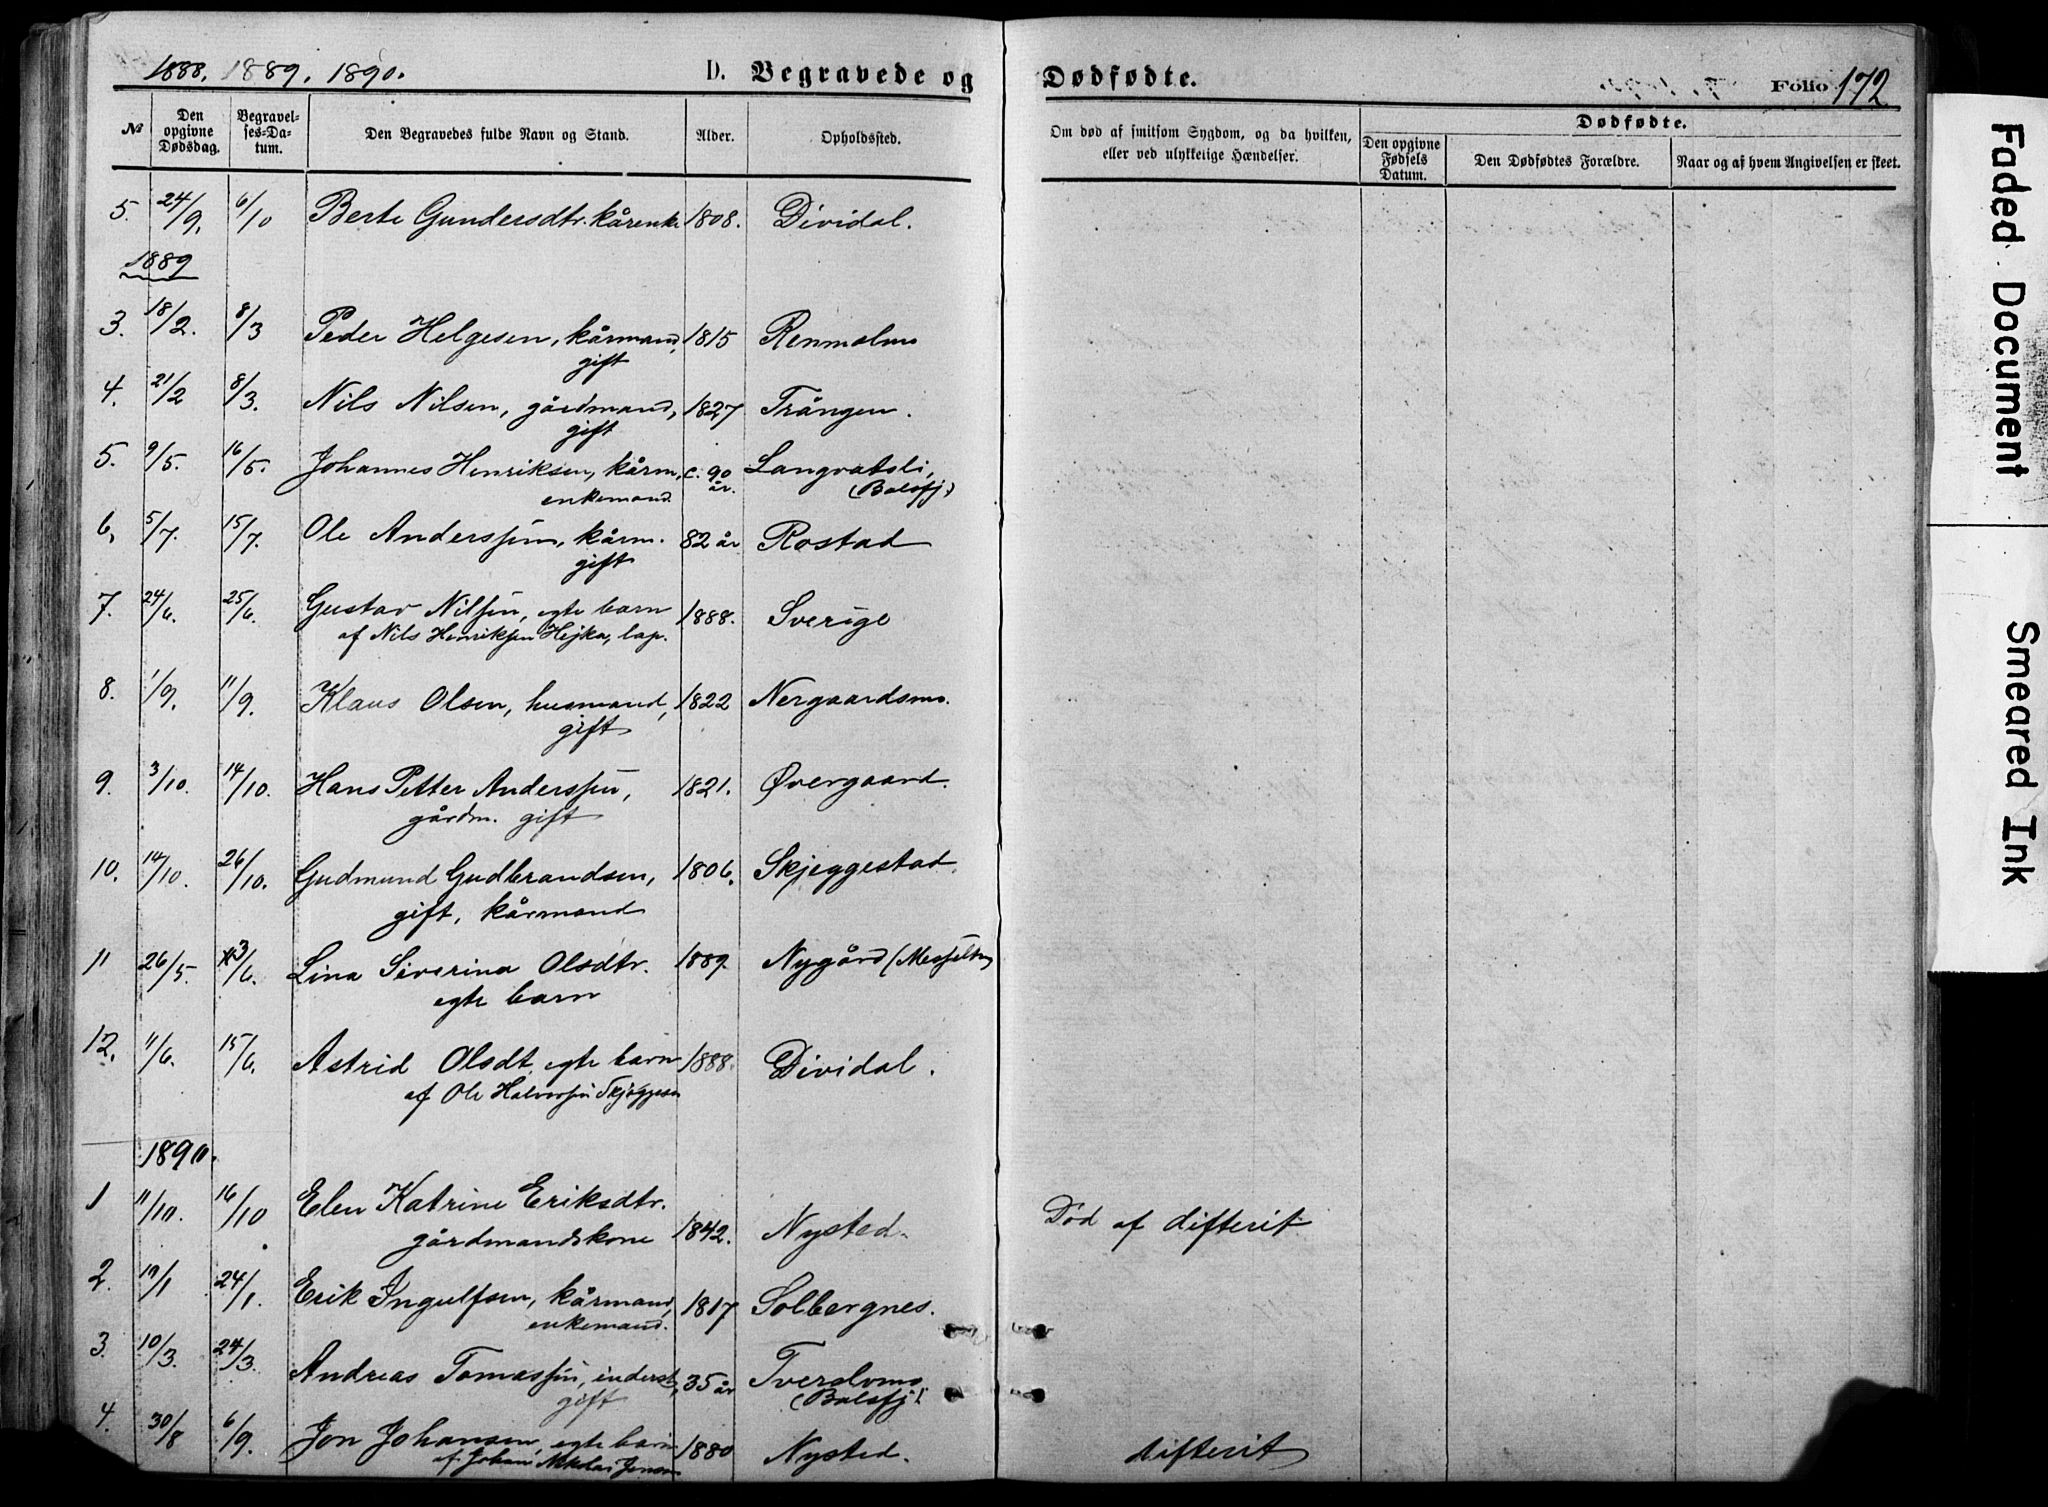 1888. 1889. 1890. D. Begravede og Dødfødte. Folio 172
№ Den opgivne Dødsdag. Begravelses-Datum. Den Begravedes fulde Navn og Stand. Alder. Opholdssted. Om død af smitsom Sygdom, og da hvilken, eller ved ulykkelige Hændelser. Dødfødte. Den opgivne Fødsels Datum. Den Dødfødtes Forældre. Naar og af hvem Angivelsen er skeet.
5. 24/9. 6/10 Berte Gundersdtr. kårenke 1808. Dividal.
1889
3. 18/2. 8/3 Peder Helgesen, kårmand, 1815 Renmolmo
gift
4. 21/2 8/3. Nils Nilsen, gårdmand, 1827 Trången.
gift
5. 9/5. 16/5. Johannes Henriksen, kårm, c. 90 år. Langvatsli,
enkemand. (Balsfj.)
6, 5/7. 15/7. Ole Anderssen, kårm. 82 år Rostad
gift
7. 24/6. 25/6. Gustav Nilssen, egte barn 1888. Sverige
af Nils Henrikssen Hejka, lap.
8. 1/9. 11/9. Klaus Olsen, husmand, 1822 Nergaardsmo.
gift
9. 3/10. 14/10. Hans Petter Anderssen, 1821. Øvergaard.
gårdm. gift
10. 14/10. 26/10. Gudmund Gudbrandsen, 1806. Skjeggestad.
gift, kårmand
11 26/5. 3/6. Lina Siverina Olsdtr. 1889. Nygård
egte barn
12. 11/6. 15/6. Astrid Olsdt, egte barn 1888. Dividal.
af Ole Halvorssen
1890.
1 11/10. 16/10 Elen Katrine Eriksdtr.
gårdmandskone 1842. Nysted. Død af difterit.
2. 24/1. Erik Ingulfsen, kårmand, 1817. Solbergnes.
enkemand.
3. 10/3. 24/3. Andreas Tomassen, inderst, 35 år Tverelvmo
gift (Balsfj.)
4. 30/8 6/9. Jon Johansen, egte barn 1880 Nysted. difterit
af Johan Nikolai Jensen
Faded Document
Smeared Ink